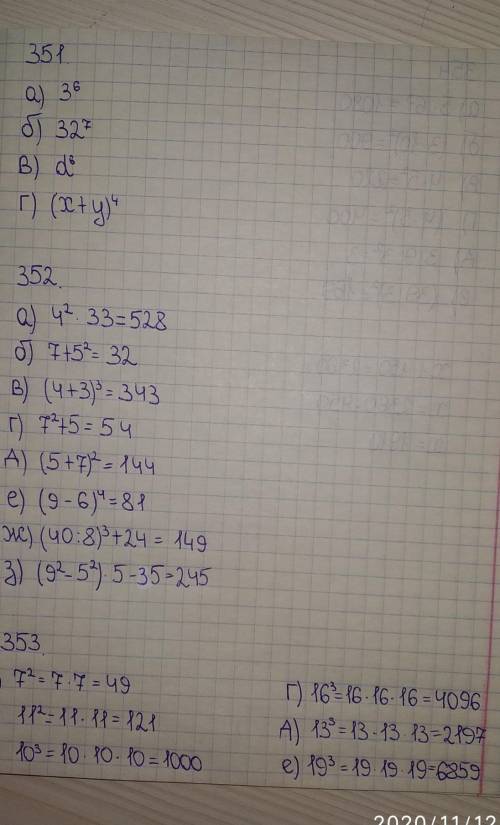 351.
а) 3⁶
б) 32⁷
в) d⁸
г) (x+y)⁴
352.
а) 4² · 33=528
б) 7+5²= 32
в) (4+3)³= 343
г) 7²+5= 54
д) (5+7)²=144
е) (9-6)⁴=81
ж) (40:8)³+24= 149
з) (9²-5²)·5-35=245
353.
7²=7·7=49
11²=11·11=121
10³=10·10·10=1000
г) 16³=16·16·16=4096
д) 13³=13·13·13=2197
е) 19³=19·19·19=6859
2020/11/12